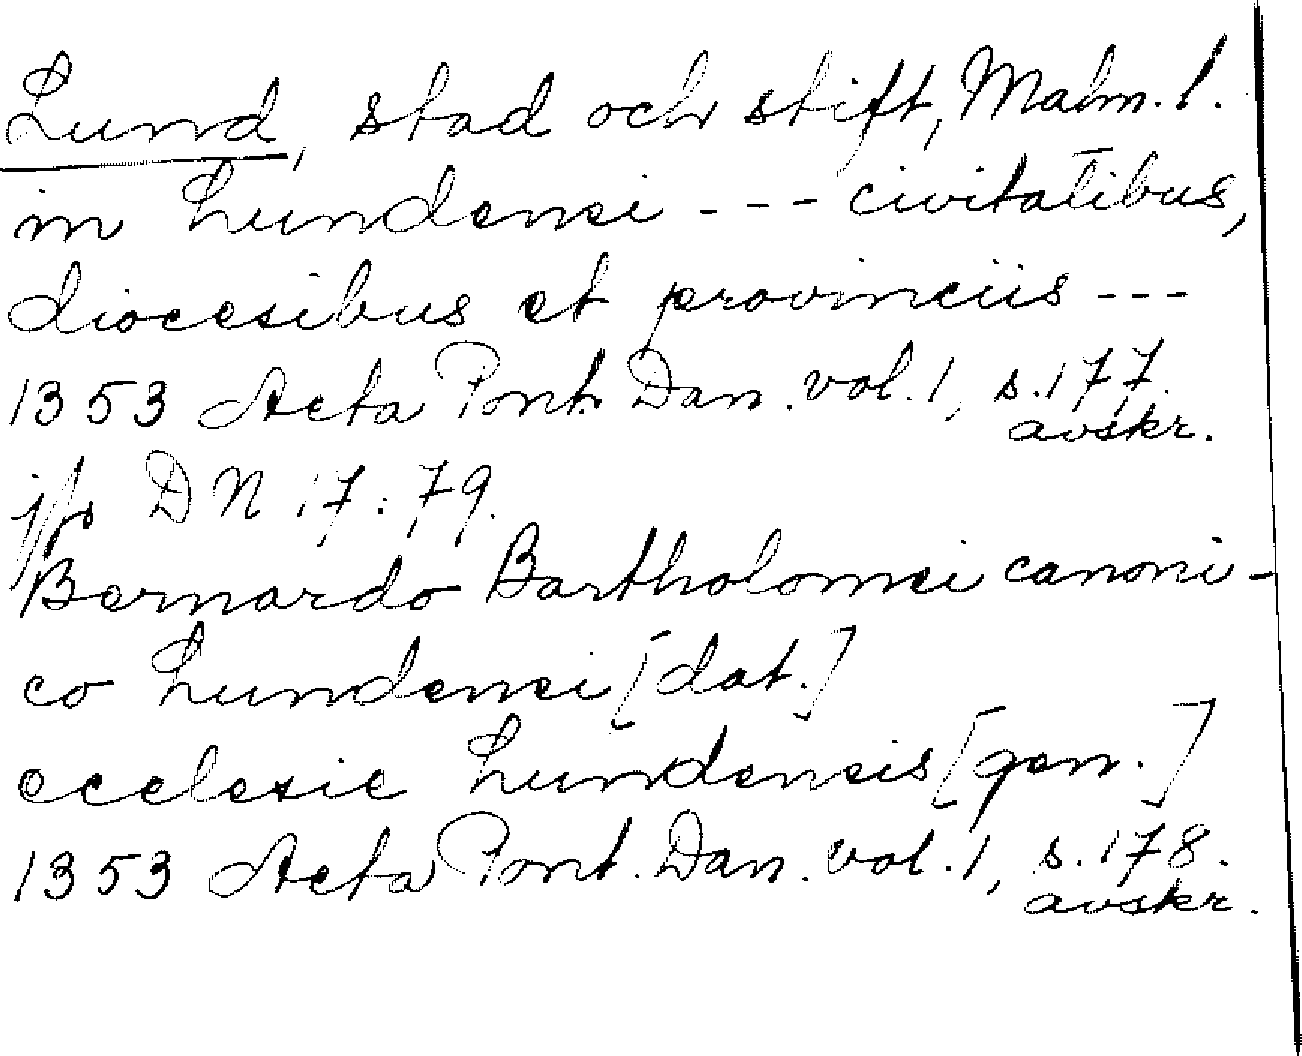 Lund, stad och stift, Malm. l.
in Lundensi --- civitatibus,
diocesibus et provinciis ---
1353 Acta Pont. Dan. vol. 1, s. 177.
avskr.
jfr DN 17:79.
Bernardo Bartholomei canoni-
co Lundensi [dat.]
ecclesie Lundensis [gen.]
1353 Acta Pont. Dan. vol. 1, s. 178.
avskr.